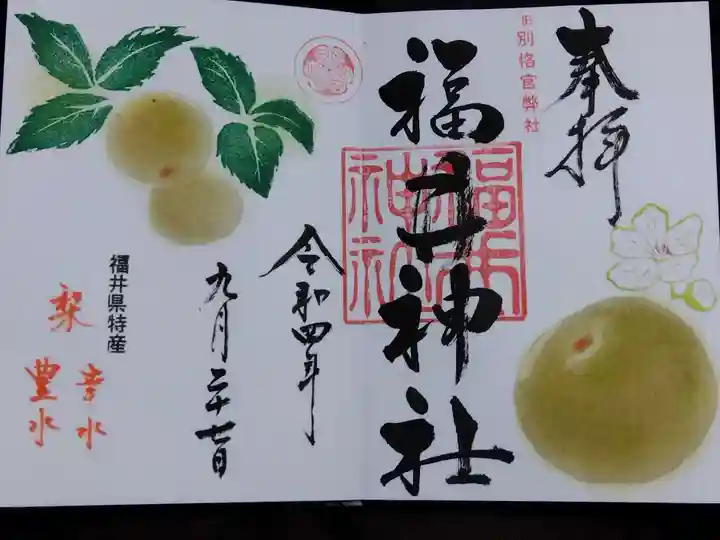 奉拝
旧別格官幣社
福井神社
令和四年
九月二十七日
福井県特産
梨
幸水
豊水